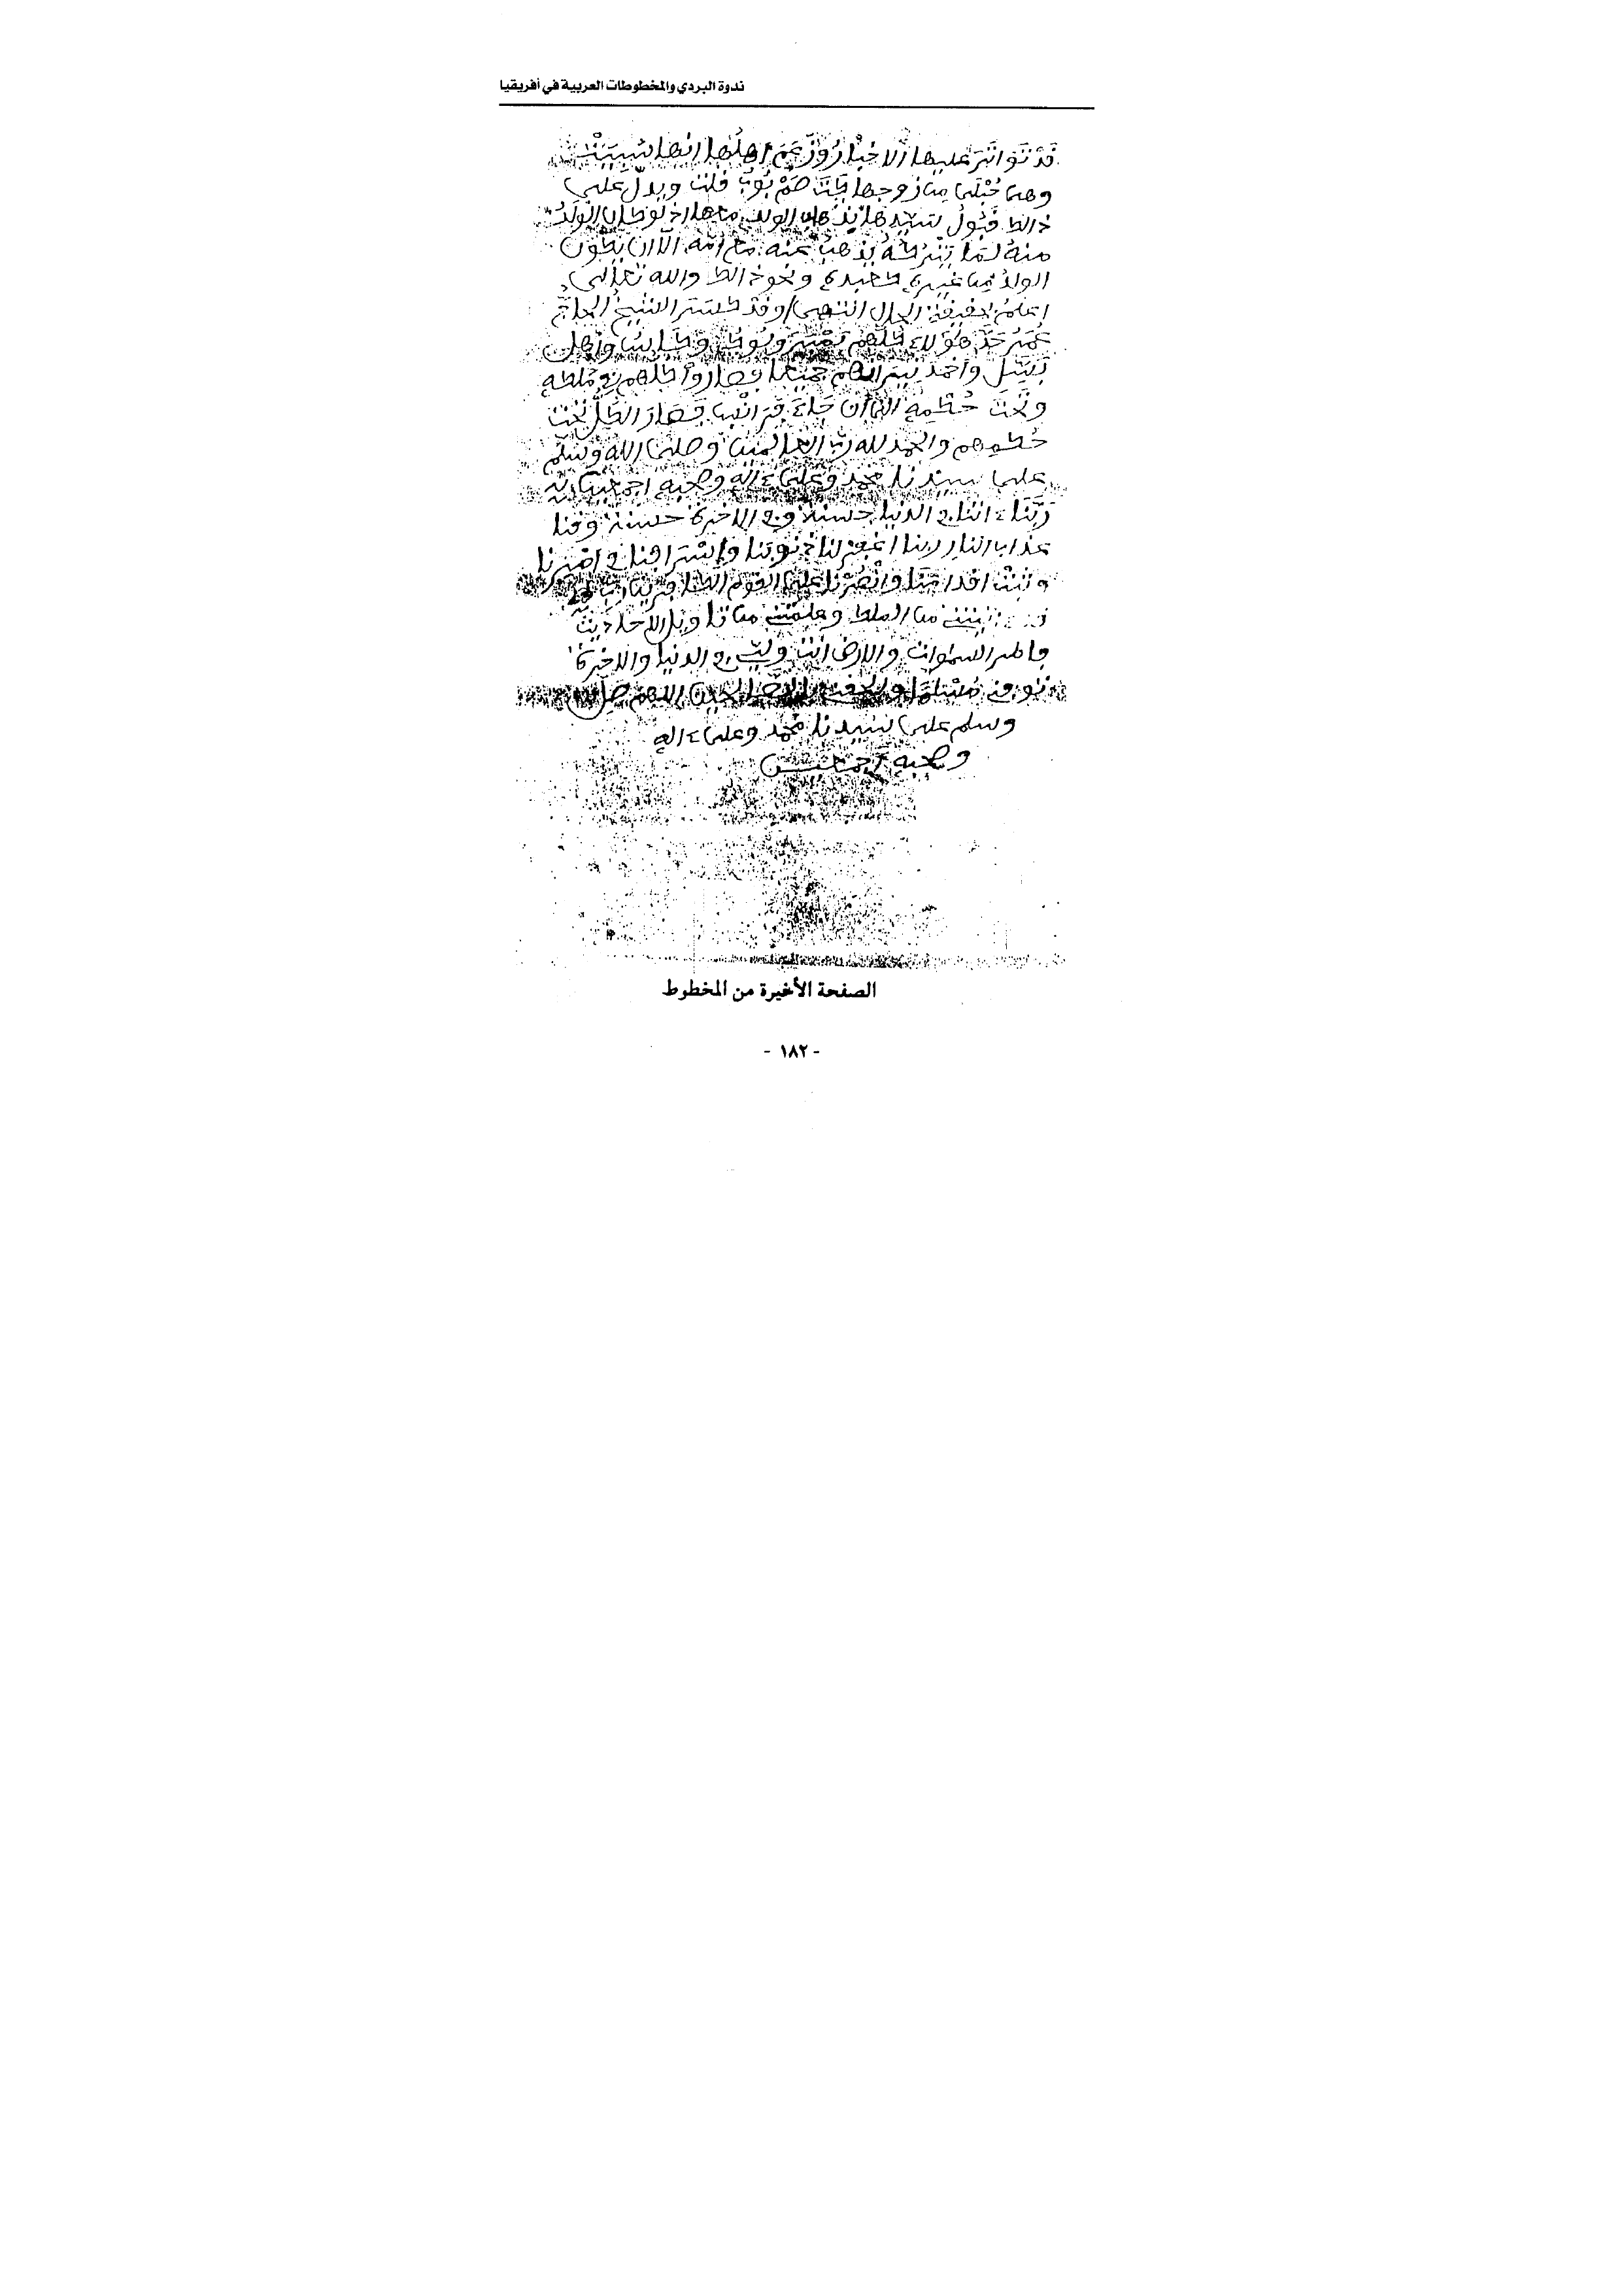 ندوة البردي والمخطوطات العربية في أفريقيا
قَدْ تَوَاتَرَ عليها الاخبارُ وزعَمَ اهلُها انها سُبِيَتْ
وهى حُبْلَى من زوجها قلت ويدلّ على
ذالك قبُولُ سيّدها بذهاب الولد معها اذ لو كان الولدُ
منه لمَا يَتْرُكُهُ يذهبُ عنه مع امّه الّا ان يكون
الولدُ من غيره كعبده ونحو ذالك والله تعالى
اعلمُ بحقيقة الحال انتهى وقد كسّر الشيخ الحاجّ
عُمَرُ هؤلاء كلّهم واهل
واحمد جميعا فصاروا كلهم في مُلكه
وتحْتَ حُكمِه الى أن جَاءَ فصَارَ الكلّ تحْت
حُكمهم والحمد لله ربّ العالمين وصلى الله وسلّم
على سيدنا محمد وعلى ءاله وصحبه اجمعين
رَبّنا ءاتنا في الدنيا حسنة وفي الاخرة حسنة وقنا
عذاب النار ربنا اغفر لنا ذنوبنا وإسْرَافنا في امْرنا
وثبّتْ اقدامَنا وانْصُرْنا على القوم الكافرين ربّ
قد ءاتيتنى من الملك وعلّمتنى من تاويل الاحاديث
فاطر السموات والارض انت وليّى في الدنيا والاخرة
توفنى مُسْلما والحقنى بالصّالحين اللهم صل
وسلم على سيدنا محمد وعلى ءاله
وصحبه اجمعين
الصفحة الأخيرة من المخطوط
- ١٨٢ -